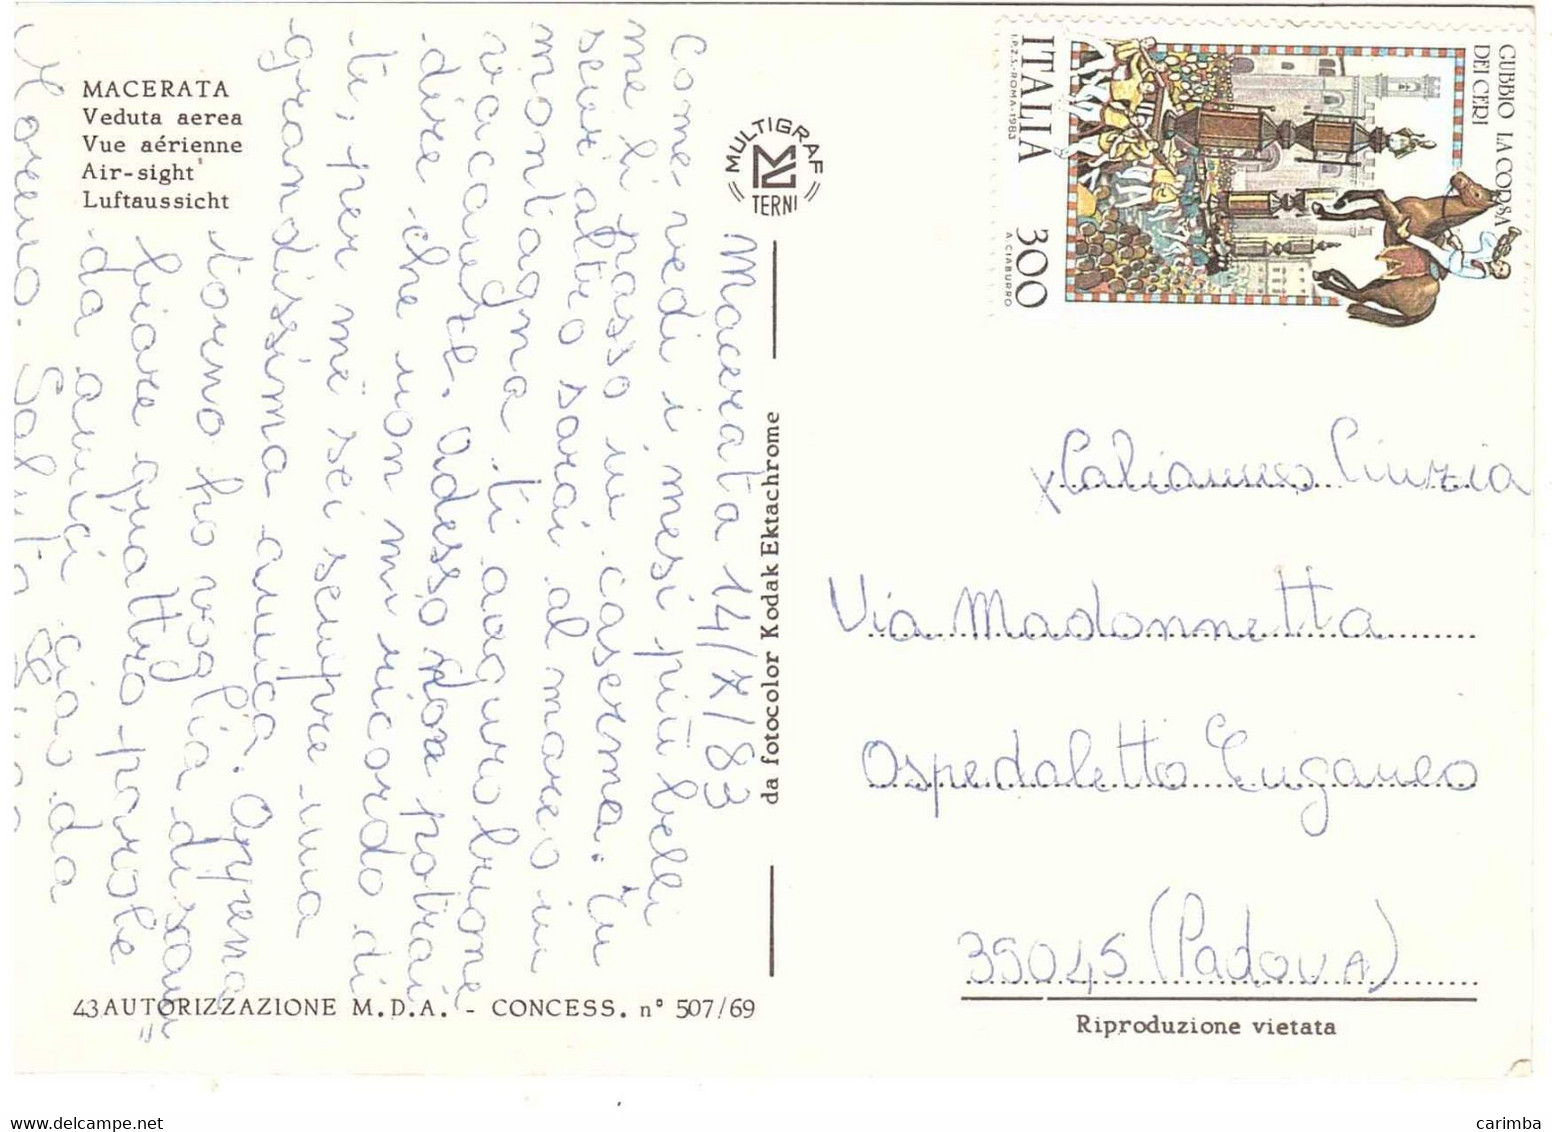 MACERATA
Veduta aerea
Vue aérienne
Air-sight
Luftaussicht
MULTIGRAF
TERNI
da fotocolor Kodak Ektachrome
Macerata 14/7/83
Come vedi i mesi più belli
me li passo in caserma. Tu
senz'altro sarai al mare o in
montagna ti auguro buone
vacanze. Adesso non potrai
dire che non mi ricordo di
te, per me sei sempre una
grandissima amica. Appena
torno ho voglia di scam
biare quattro parole
da amici ciao da
Moreno.
43 AUTORIZZAZIONE M.D.A. - CONCESS. n° 507/69
GUBBIO LA CORSA
DEI CERI
ITALIA 300
I.P.Z.S.-ROMA-1983
A. CIABURRO
Cinzia
Via Madonnetta
Ospedaletto Euganeo
35045 (Padova)
Riproduzione vietata
carimba